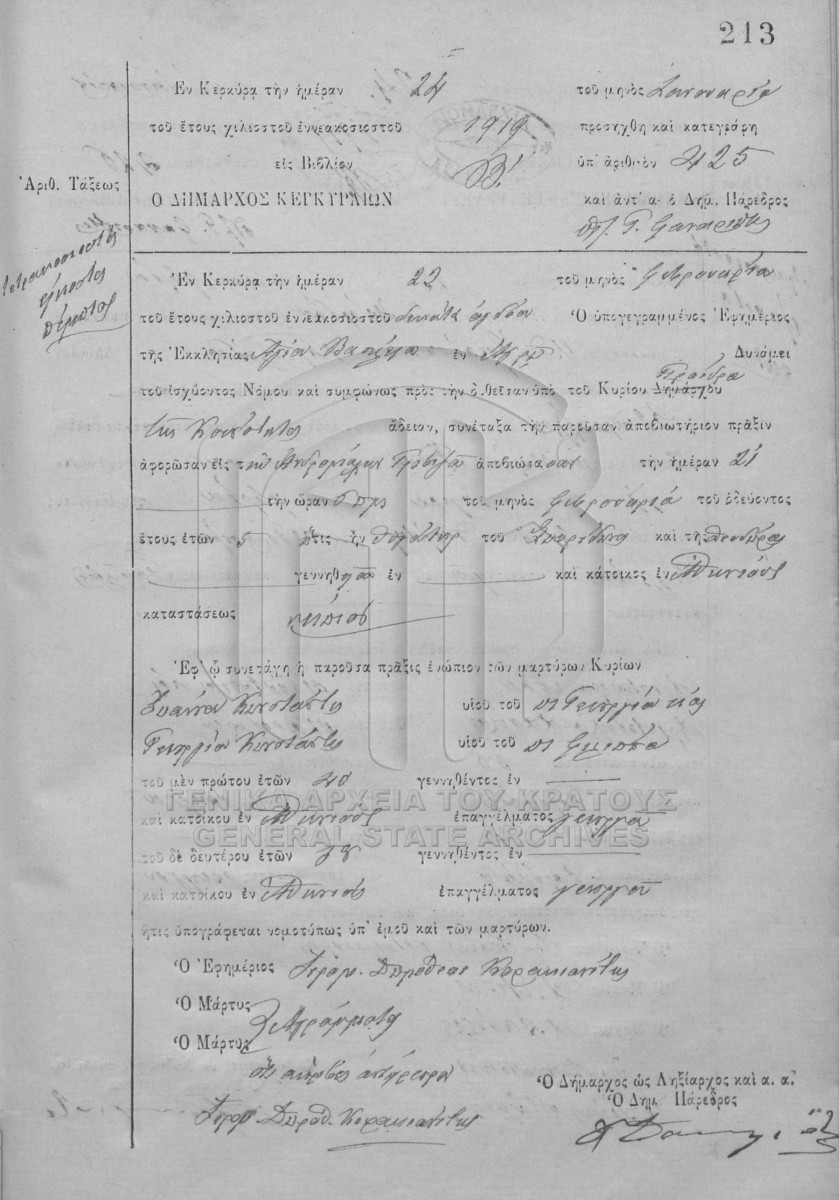 213
Ἐν Κερκύρᾳ τὴν ἡμέραν 24 τοῦ μηνὸς Ἰανουαρίου
τοῦ ἔτους χιλιοστοῦ ἐννεακοσιοστοῦ 1919 προσήχθη καὶ κατεγράφη
εἰς Βιβλίον Β! ὑπ' ἀριθμὸν 425
Ἀριθ. Τάξεως
Ὁ ΔΗΜΑΡΧΟΣ ΚΕΡΚΥΡΑΙΩΝ καὶ ἀντ' α· ὁ Δημ. Πάρεδρος
τετρακοσιοστὸς
εἰκοστὸς
πέμπτος
Ἐν Κερκύρᾳ τὴν ἡμέραν 22 τοῦ μηνὸς Φεβρουαρίου
τοῦ ἔτους χιλιοστοῦ ἐννεακοσιοστοῦ δεκάτου ὀγδόου Ὁ ὑπογεγραμμένος Ἐφημέριος
τῆς Ἐκκλησίας Ἁγίου Βασιλείου ἐν Δυνάμει
τοῦ ἰσχύοντος Νόμου καὶ συμφώνως πρὸς τὴν δοθεῖσαν ὑπὸ τοῦ Κυρίου Δημάρχου Προέδρου
τῆς Κοινότητος ἄδειαν, συνέταξα τὴν παροῦσαν ἀποβιωτήριον πρᾶξιν
ἀφορῶσαν εἰς τὴν Ἀνδρομάχην ἀποβιώσασαν τὴν ἡμέραν 21
τὴν ὥραν 5 τοῦ μηνὸς Φεβρουαρίου τοῦ ὁδεύοντος
ἔτους ἐτῶν 5 ἥτις ἦν θυγάτηρ τοῦ Σπυρίδωνος καὶ τῆς Θεοδώρας
γεννηθεῖσα ἐν καὶ κάτοικος ἐν
καταστάσεως νήπιον
Ἐφ' ᾧ συνετάγη ἡ παροῦσα πρᾶξις ἐνώπιον τῶν μαρτύρων Κυρίων
Ἰωάννου υἱοῦ τοῦ
Γεωργίου υἱοῦ τοῦ
τοῦ μὲν πρώτου ἐτῶν 40 γεννηθέντος ἐν
ΓΕΝΙΚΑ ΑΡΧΕΙΑ ΤΟΥ ΚΡΑΤΟΥΣ
καὶ κατοίκου ἐν ἐπαγγέλματος γεωργοῦ
GENERAL STATE ARCHIVES
τοῦ δὲ δευτέρου ἐτῶν 38 γεννηθέντος ἐν
καὶ κατοίκου ἐν ἐπαγγέλματος γεωργοῦ
ἥτις ὑπογράφεται νομοτύπως ὑπ' ἐμοῦ καὶ τῶν μαρτύρων.
Ὁ Ἐφημέριος Ἱερομ. Δωρόθεος Κορακιανίτης
Ὁ Μάρτυς
Ἀγράμματοι
Ὁ Μάρτυς
Ὅτι ἀκριβὲς ἀντίγραφον
Ἱερομ. Δωρόθ. Κορακιανίτης
Ὁ Δήμαρχος ὡς Ληξίαρχος καὶ α. α.
Ὁ Δημ. Πάρεδρος